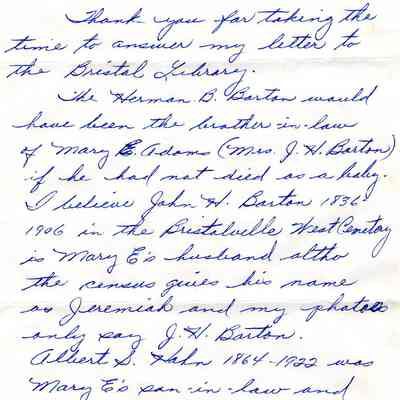 Thank you for taking the
time to answer my letter to
the Bristol Library.
The Herman B. Barton would
have been the brother-in-law
of Mary E. Adams (Mrs. J. H. Barton)
if he had not died as a baby.
I believe John H. Barton 1836
1906 in the Bristolville West Cemetery
is Mary E's husband altho
the census gives his name
as Jeremiah and my photos
only say J. H. Barton.
Albert S. Hahn 1864-1922 was
Mary E's son-in-law and